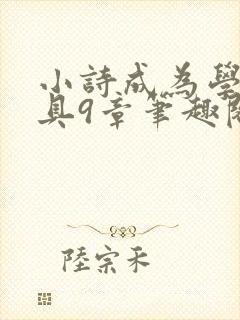 小詩成為學
具9章筆趣閱
陸宗禾